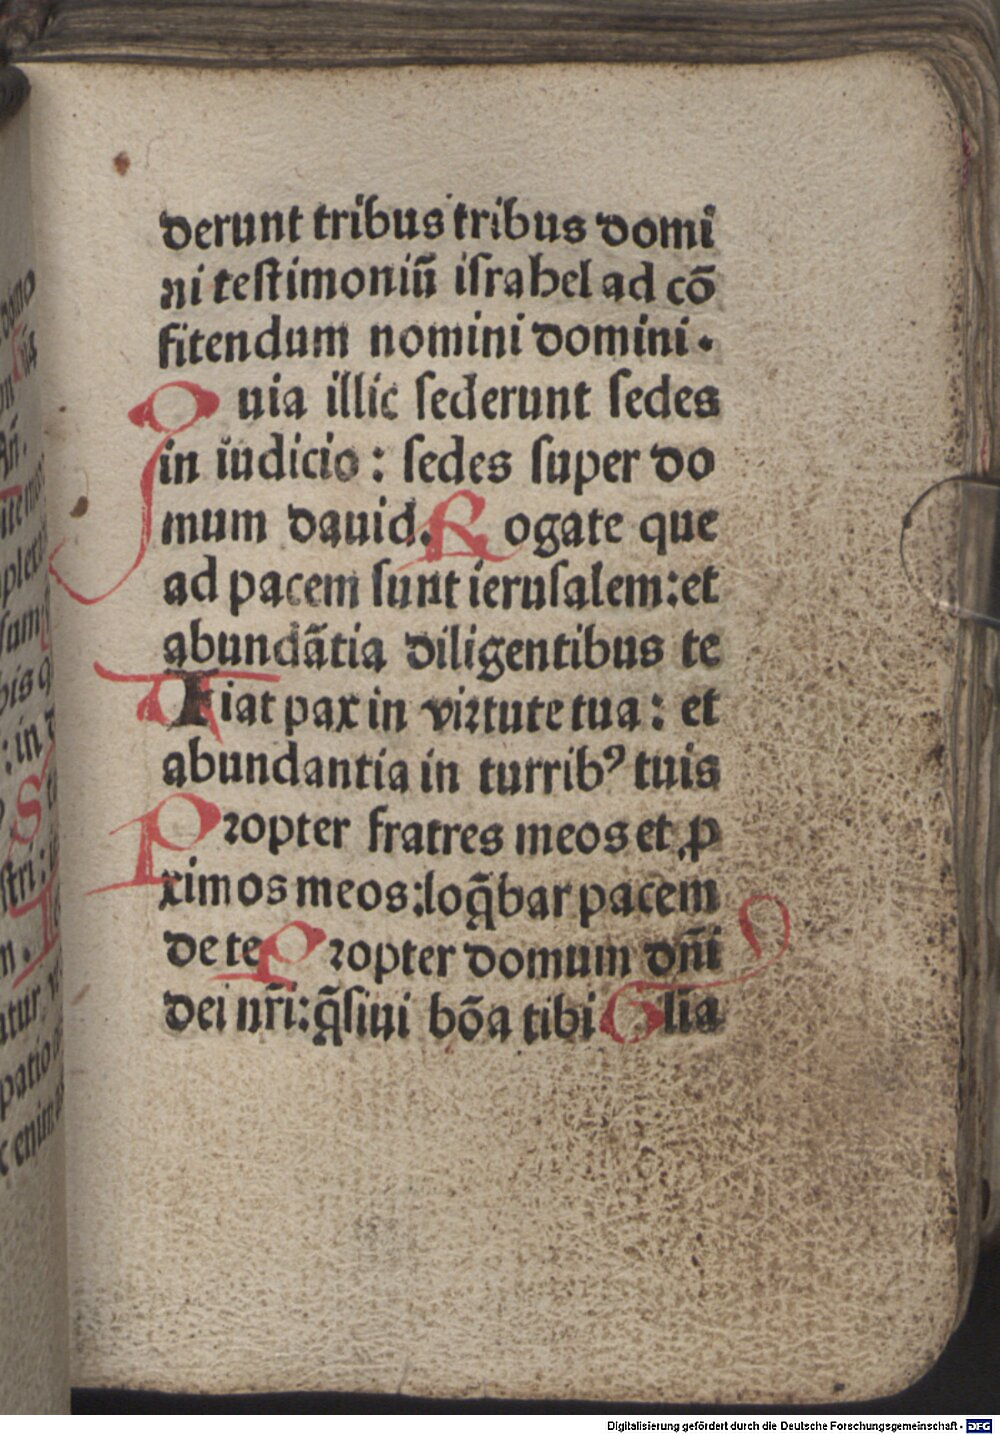 derunt tribus tribus domi
ni teſtimoniū iſrahel ad cō
fitendum nomini domini.
Quia illic ſederunt ſedes
in iudicio: ſedes ſuper do
mum dauid. Rogate que
ad pacem ſunt ieruſalem: et
abundātia diligentibus te
Fiat pax in virtute tua: et
abundantia in turribꝰ tuis
Propter fratres meos et ꝓ
ximos meos: loq̄bar pacem
de te Propter domum dn̄i
dei nr̄i: q̄ſiui bōa tibi Glīa
Digitalisierung gefördert durch die Deutsche Forschungsgemeinschaft - DFG